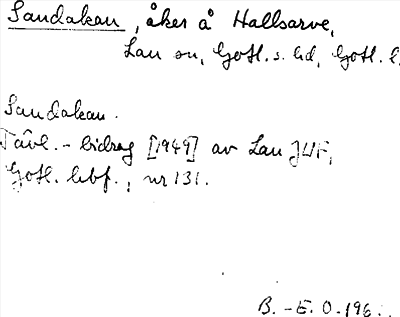 Sandakan, åker å Hallsarve,
Lau sn, Gotl. s. hd, Gotl. l.
Sandakan.
Tävl. - bidrag [1949] av Lau JUF,
Gotl. hbf., nr 131.
B. - E. O. 196